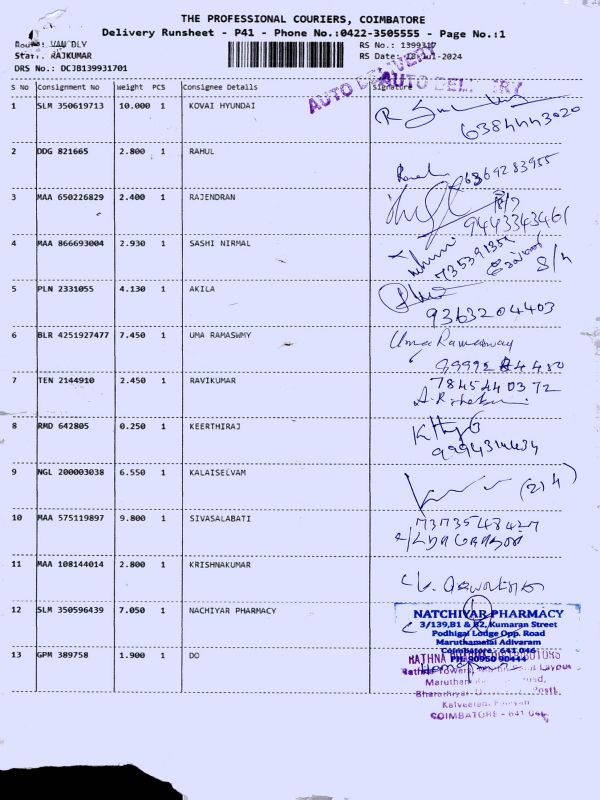 THE PROFESSIONAL COURIERS, COIMBATORE
Delivery Runsheet - P41 - Phone No.:0422-3505555 - Page No.:1
Route: VAN DLY
Staff: RAJKUMAR
DRS No.: DCJB139931701
RS No.: 1399317
RS Date: 18-Jul-2024
AUTO DELIVERY
AUTO DELIVERY
S No Consignment No Weight PCS Consignee Details Signature
1 SLM 350619713 10.000 1 KOVAI HYUNDAI
6384443020
2 DDG 821665 2.800 1 RAHUL
6369283955
3 MAA 650226829 2.400 1 RAJENDRAN
18/7
9443343461
4 MAA 866693004 2.930 1 SASHI NIRMAL
5 PLN 2331055 4.130 1 AKILA
9363204403
6 BLR 4251927477 7.450 1 UMA RAMASWMY
Uma Ramaswamy
7 TEN 2144910 2.450 1 RAVIKUMAR
7845440372
8 RMD 642805 0.250 1 KEERTHIRAJ
9994314434
9 NGL 200003038 6.550 1 KALAISELVAM
10 MAA 575119897 9.800 1 SIVASALABATI
7373548427
11 MAA 108144014 2.800 1 KRISHNAKUMAR
12 SLM 350596439 7.050 1 NACHIYAR PHARMACY
NATCHIYAR PHARMACY
3/139,B1 & B2, Kumaran Street
Podhigai Lodge Opp. Road
Maruthamalai Adivaram
Coimbatore - 641 046
PH: 90950 90444
13 GPM 389758 1.900 1 DO
RATHNA
Rathna Towers, Layout
Maruthamalai Road,
Post)
COIMBATORE - 641 046